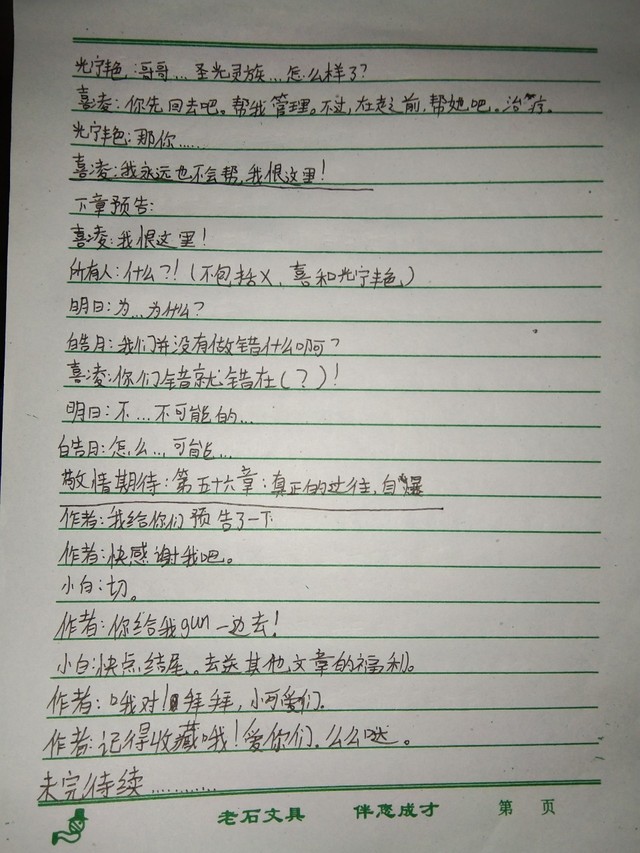 光宁艳:哥哥...圣光灵族...怎么样了?
喜凌:你先回去吧。帮我管理。不过,在走之前,帮她吧。治疗。
光宁艳:那你......
喜凌:我永远也不会帮,我恨这里!
下章预告:
喜凌:我恨这里!
所有人:什么?!(不包括X,喜和光宁艳)
明日:为...为什么?
皓月:我们并没有做错什么啊?
喜凌:你们错就错在(?)!
明日:不...不可能的...
皓月:怎么...可能...
敬请期待:第五十六章:真正的过往,自爆
作者:我给你们预告了一下
作者:快感谢我吧。
小白:切。
作者:你给我gun一边去!
小白:快点结尾。去送其他文章的福利。
作者:哦对!拜拜,小可爱们.
作者:记得收藏哦!爱你们.么么哒。
未完待续..........
老石文具 伴您成才 第 页